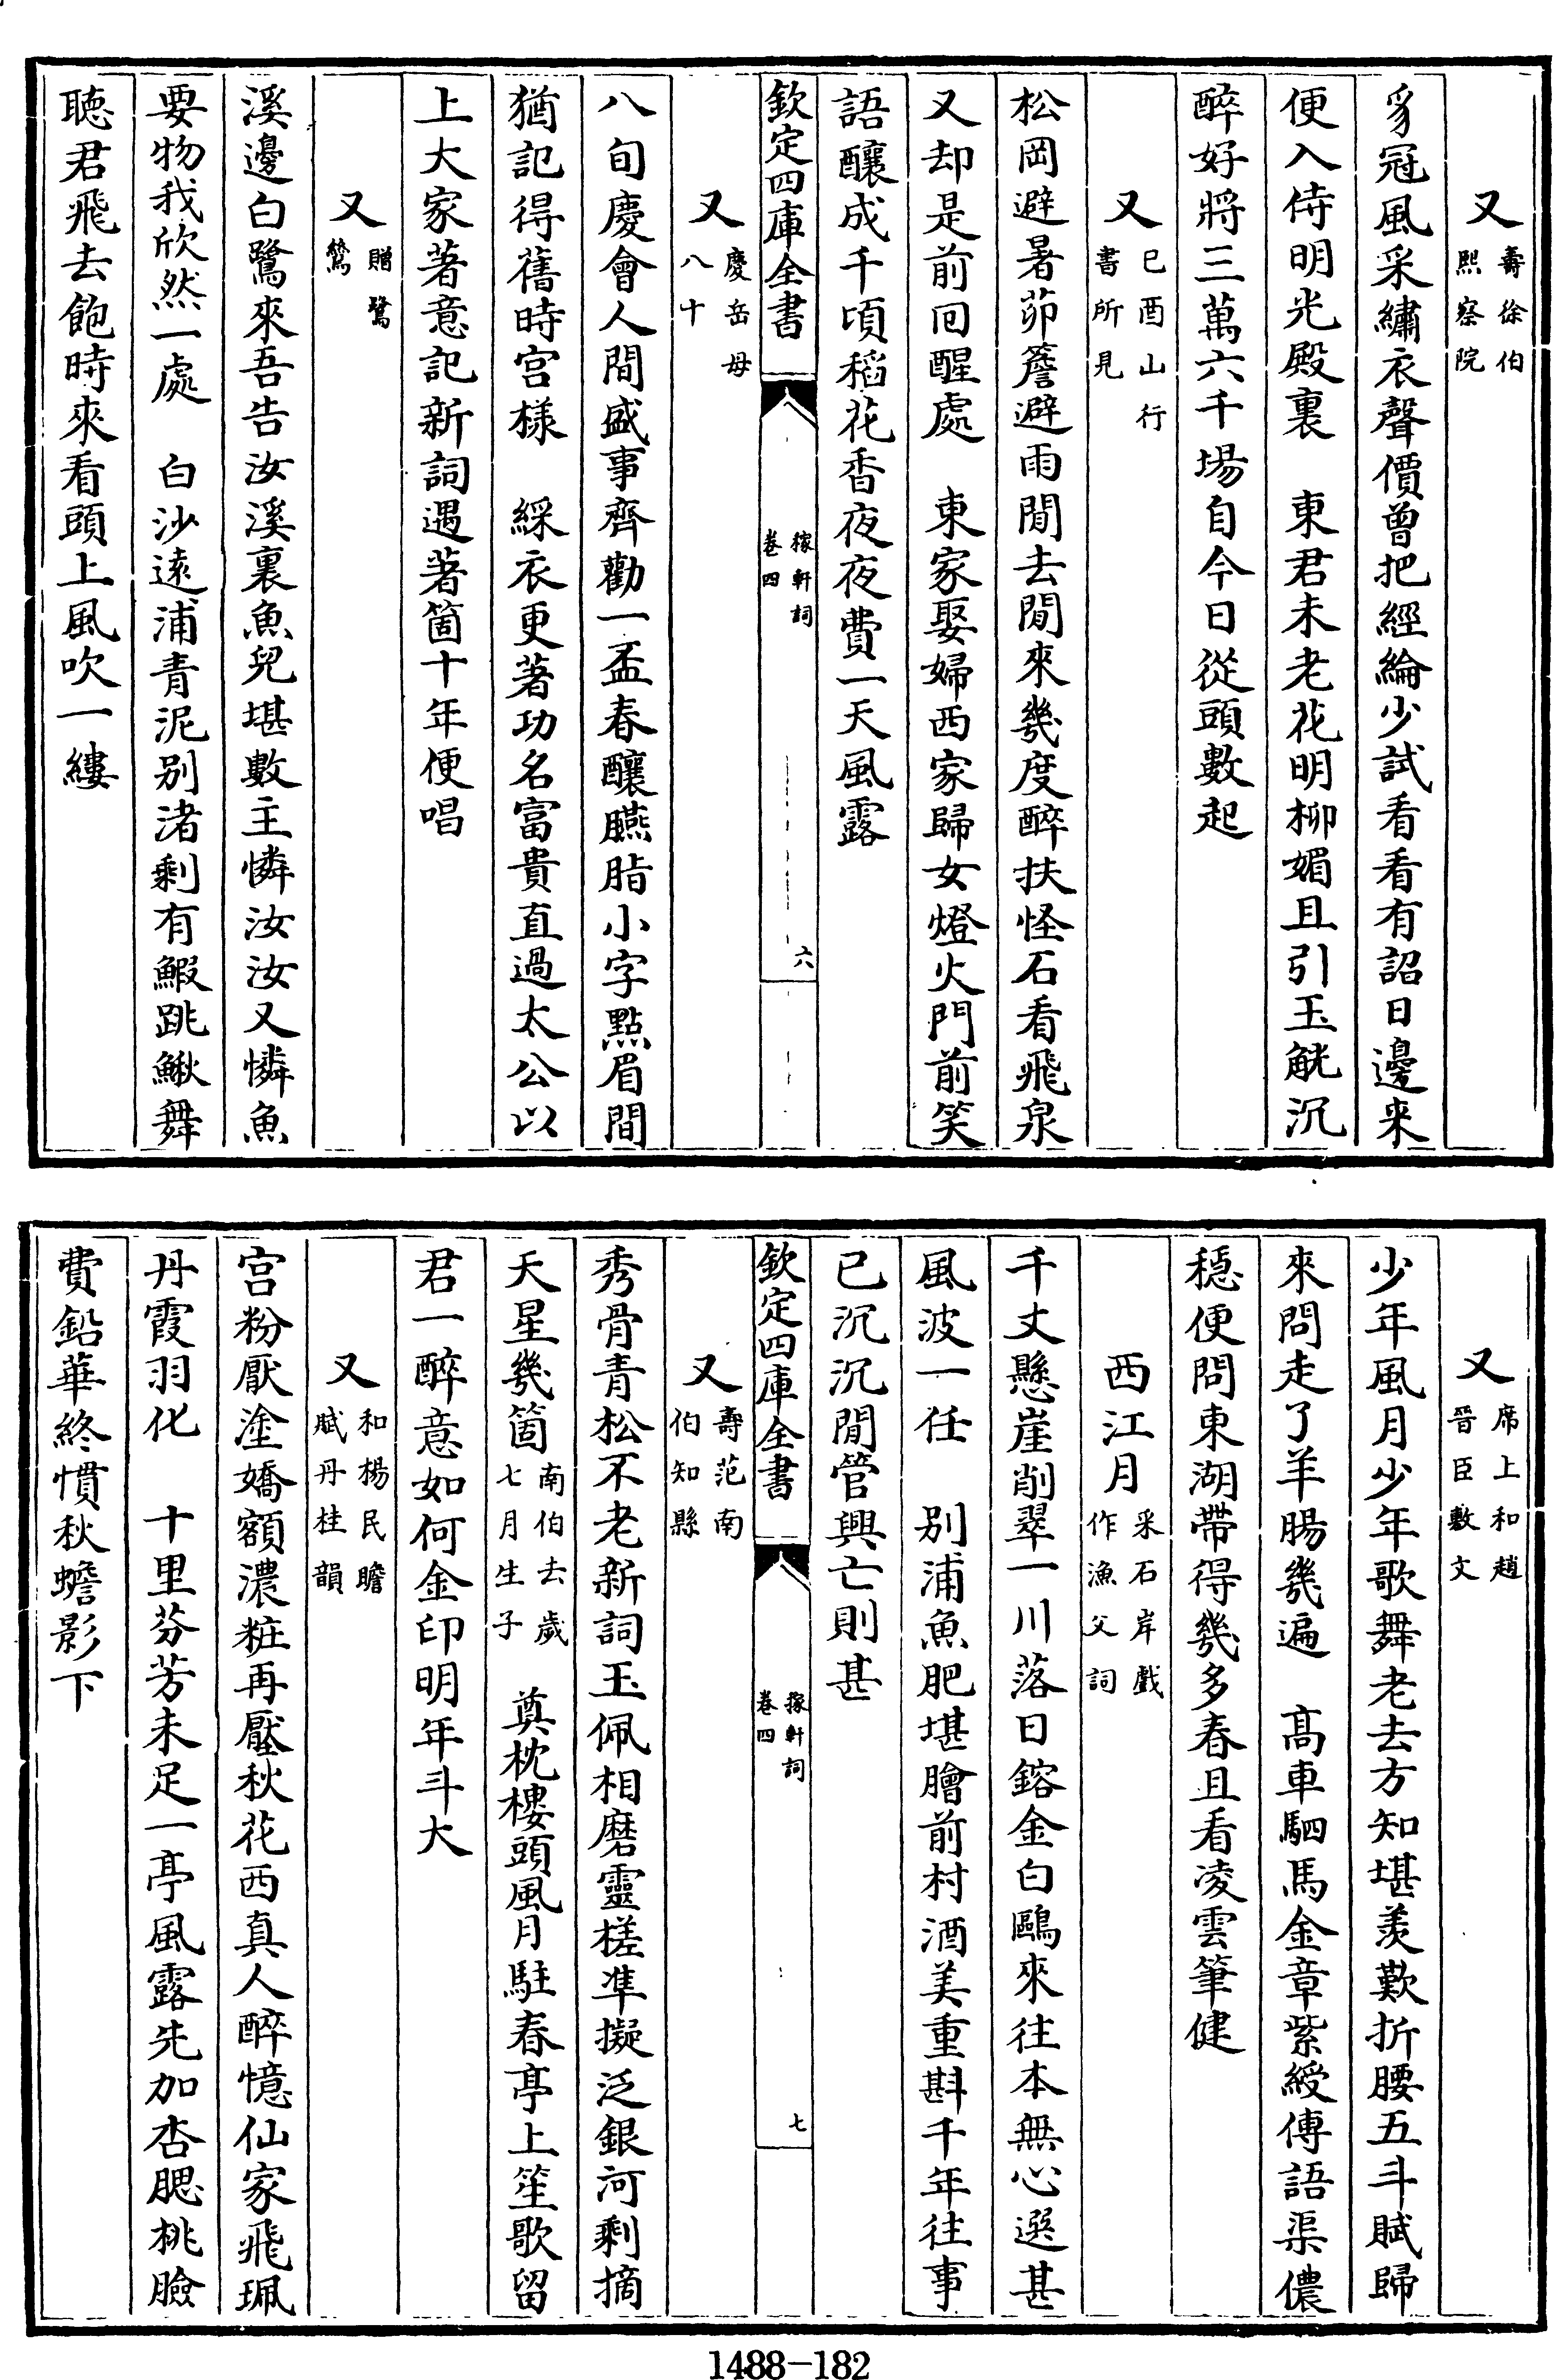 又壽徐伯熙察院
豸冠風采繡衣聲價曾把經綸少試看看有詔日邊来
便入侍明光殿裏　東君未老花明柳媚且引玉觥沉
醉好將三萬六千場自今日從頭數起
又巳酉山行書所見
松岡避暑茆簷避雨閒去閒來幾度醉扶怪石看飛泉
又却是前回醒處　東家娶婦西家歸女燈火門前笑
語釀成千頃稻花香夜夜費一天風露
欽定四庫全書　稼軒詞卷四　六
又慶岳母八十
八旬慶會人間盛事齊勸一盃春釀臙脂小字點眉間
猶記得舊時宫様　綵衣更著功名富貴直過太公以
上大家著意記新詞遇著箇十年便唱
又贈鷺鷥
溪邊白鷺來吾告汝溪裏魚兒堪數主憐汝汝又憐魚
要物我欣然一處　白沙遠浦青泥别渚剩有鰕跳鰍舞
聽君飛去飽時來看頭上風吹一縷
又席上和趙晉臣敷文
少年風月少年歌舞老去方知堪羨歎折腰五斗賦歸
來問走了羊腸幾遍　髙車駟馬金章紫綬傳語渠儂
穏便問東湖帶得幾多春且看凌雲筆健
西江月采石岸戲作漁父詞
千丈懸崖削翠一川落日鎔金白鷗來往本無心選甚
風波一任　别浦魚肥堪膾前村酒美重斟千年往事
已沉沉閒管興亡則甚
欽定四庫全書　稼軒詞卷四　七
又壽范南伯知縣
秀骨青松不老新詞玉佩相磨靈槎凖擬泛銀河剩摘
天星幾箇南伯去歲七月生子　奠枕樓頭風月駐春亭上笙歌留
君一醉意如何金印明年斗大
又和楊民瞻賦丹桂韻
宫粉厭塗嬌額濃粧再壓秋花西真人醉憶仙家飛珮
丹霞羽化　十里芬芳未足一亭風露先加杏腮桃臉
費鉛華終慣秋蟾影下
1488-182